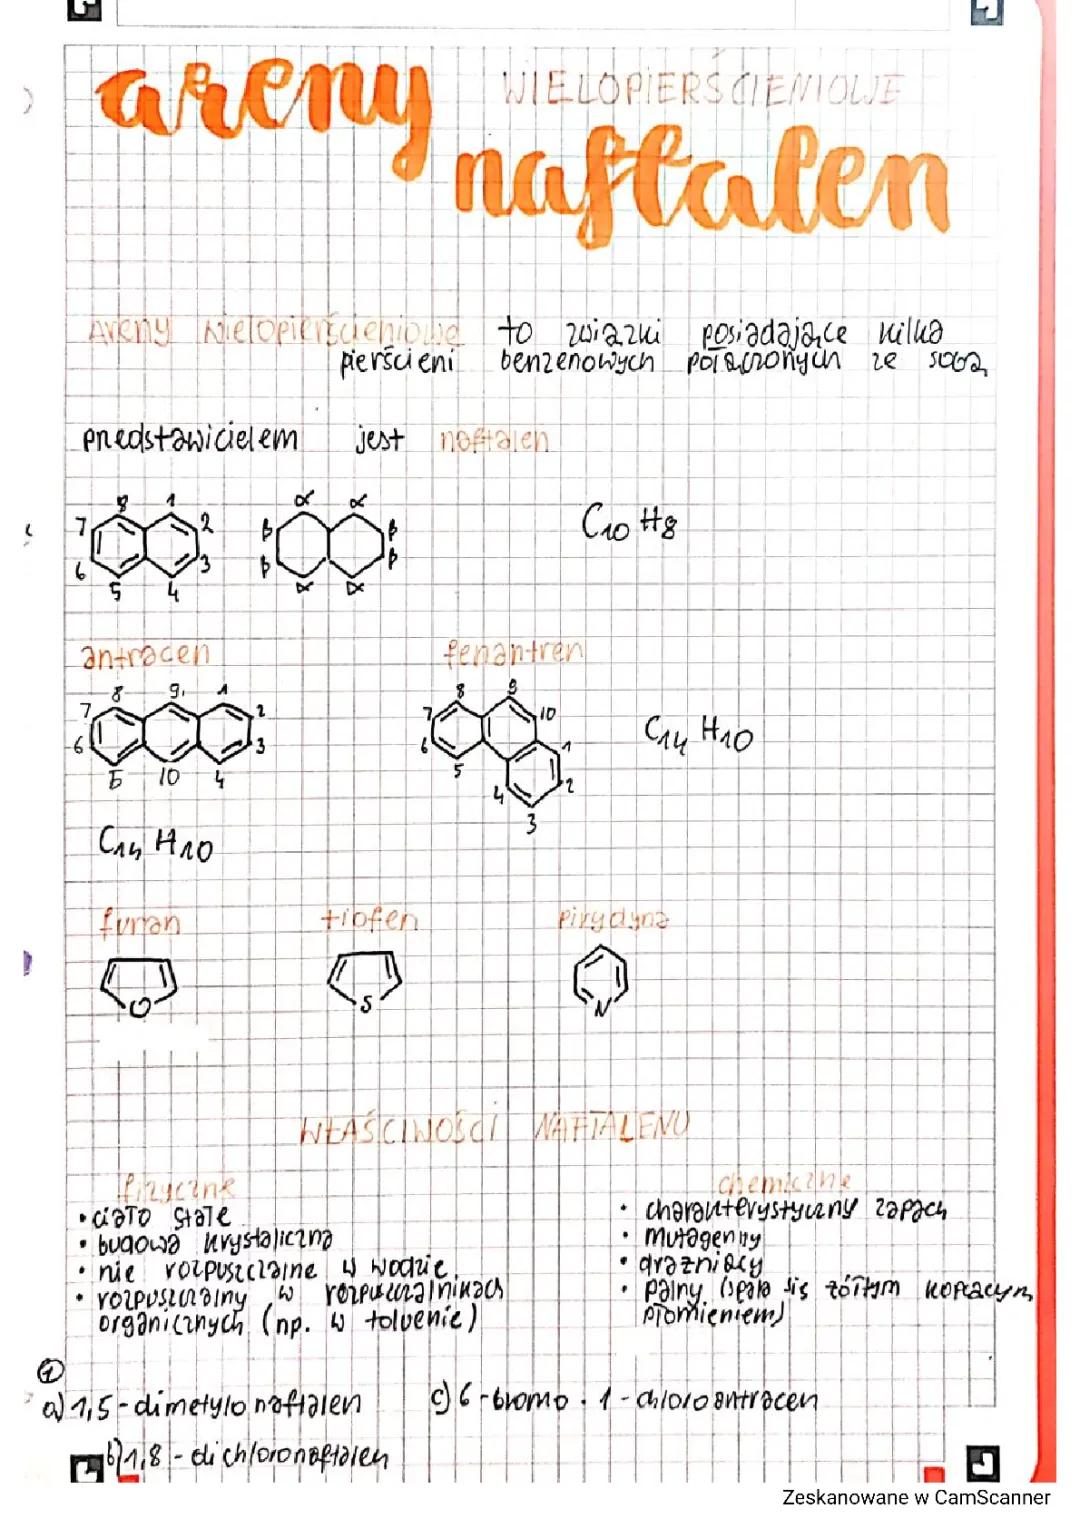 areny WIELOPIERŚCIENIOWE
naftalen
Areny wielopierścieniowe to związki posiadające kilka
pierścieni benzenowych połączonych ze sobą
przedstawicielem jest naftalen
8 1 α α
7 2 β β
C10H8
6 3 β β
5 4 α α
antracen fenantren
8 9 1 8 9
7 2 7 10
6 3 6 1
C14H10
5 10 4 5 4 2
3
C14H10
furan tiofen pirydyna
O S N
WŁAŚCIWOŚCI NAFTALENU
fizyczne chemiczne
• ciało stałe
• budowa krystaliczna
• nie rozpuszczalne w wodzie
• rozpuszczalny w rozpuszczalnikach
organicznych (np. w toluenie)
• charakterystyczny zapach
• mutagenny
• drażniący
• palny (spala się żółtym kopcącym
płomieniem)
1
a) 1,5-dimetylonaftalen c) 6-bromo-1-chloroantracen
b) 1,8-dichloronaftalen
Zeskanowane w CamScanner